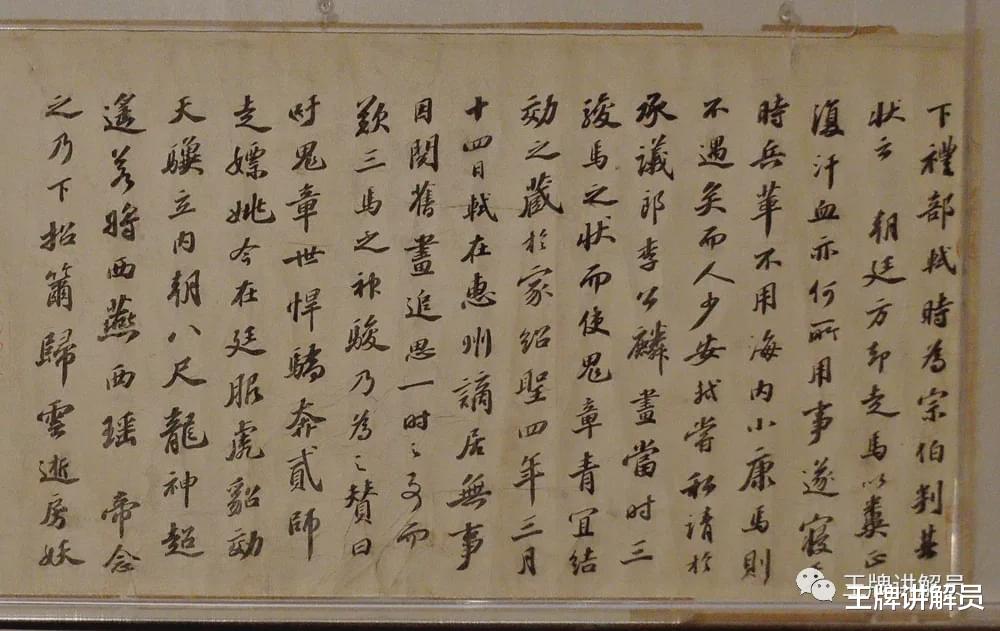 下禮部軾時為宗伯判其
狀云 朝廷方却走馬以糞正
復汗血亦何所用事遂寢
時兵革不用海内小康馬則
不遇矣而人少安軾嘗私請於
承議郎李公麟畫當时三
駿馬之状而使鬼章青宜結
効之藏於家紹聖四年三月
十四日軾在惠州謫居無事
因閱舊畫追思一时之事而
歎三馬之神駿乃為之赞曰
吁鬼章世悍驕奔貳師
走嫖姚今在廷服虎貂効
天驥立内朝八尺龍神超
遙若將西燕西瑶 帝念
之乃下招籋歸雲逝房妖
王牌讲解员
王牌讲解员